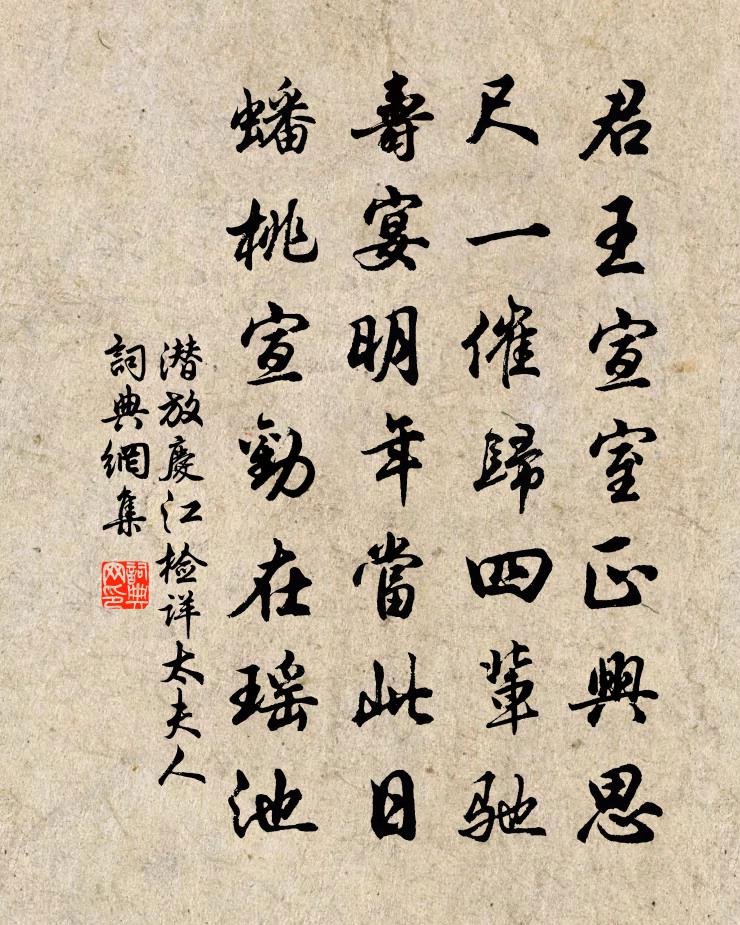 君王宣室正興思
尺一催歸四輩馳
壽宴明年當此日
蟠桃宣勸在瑤池
潜放慶江检详太夫人
詞典網集
詞典网印